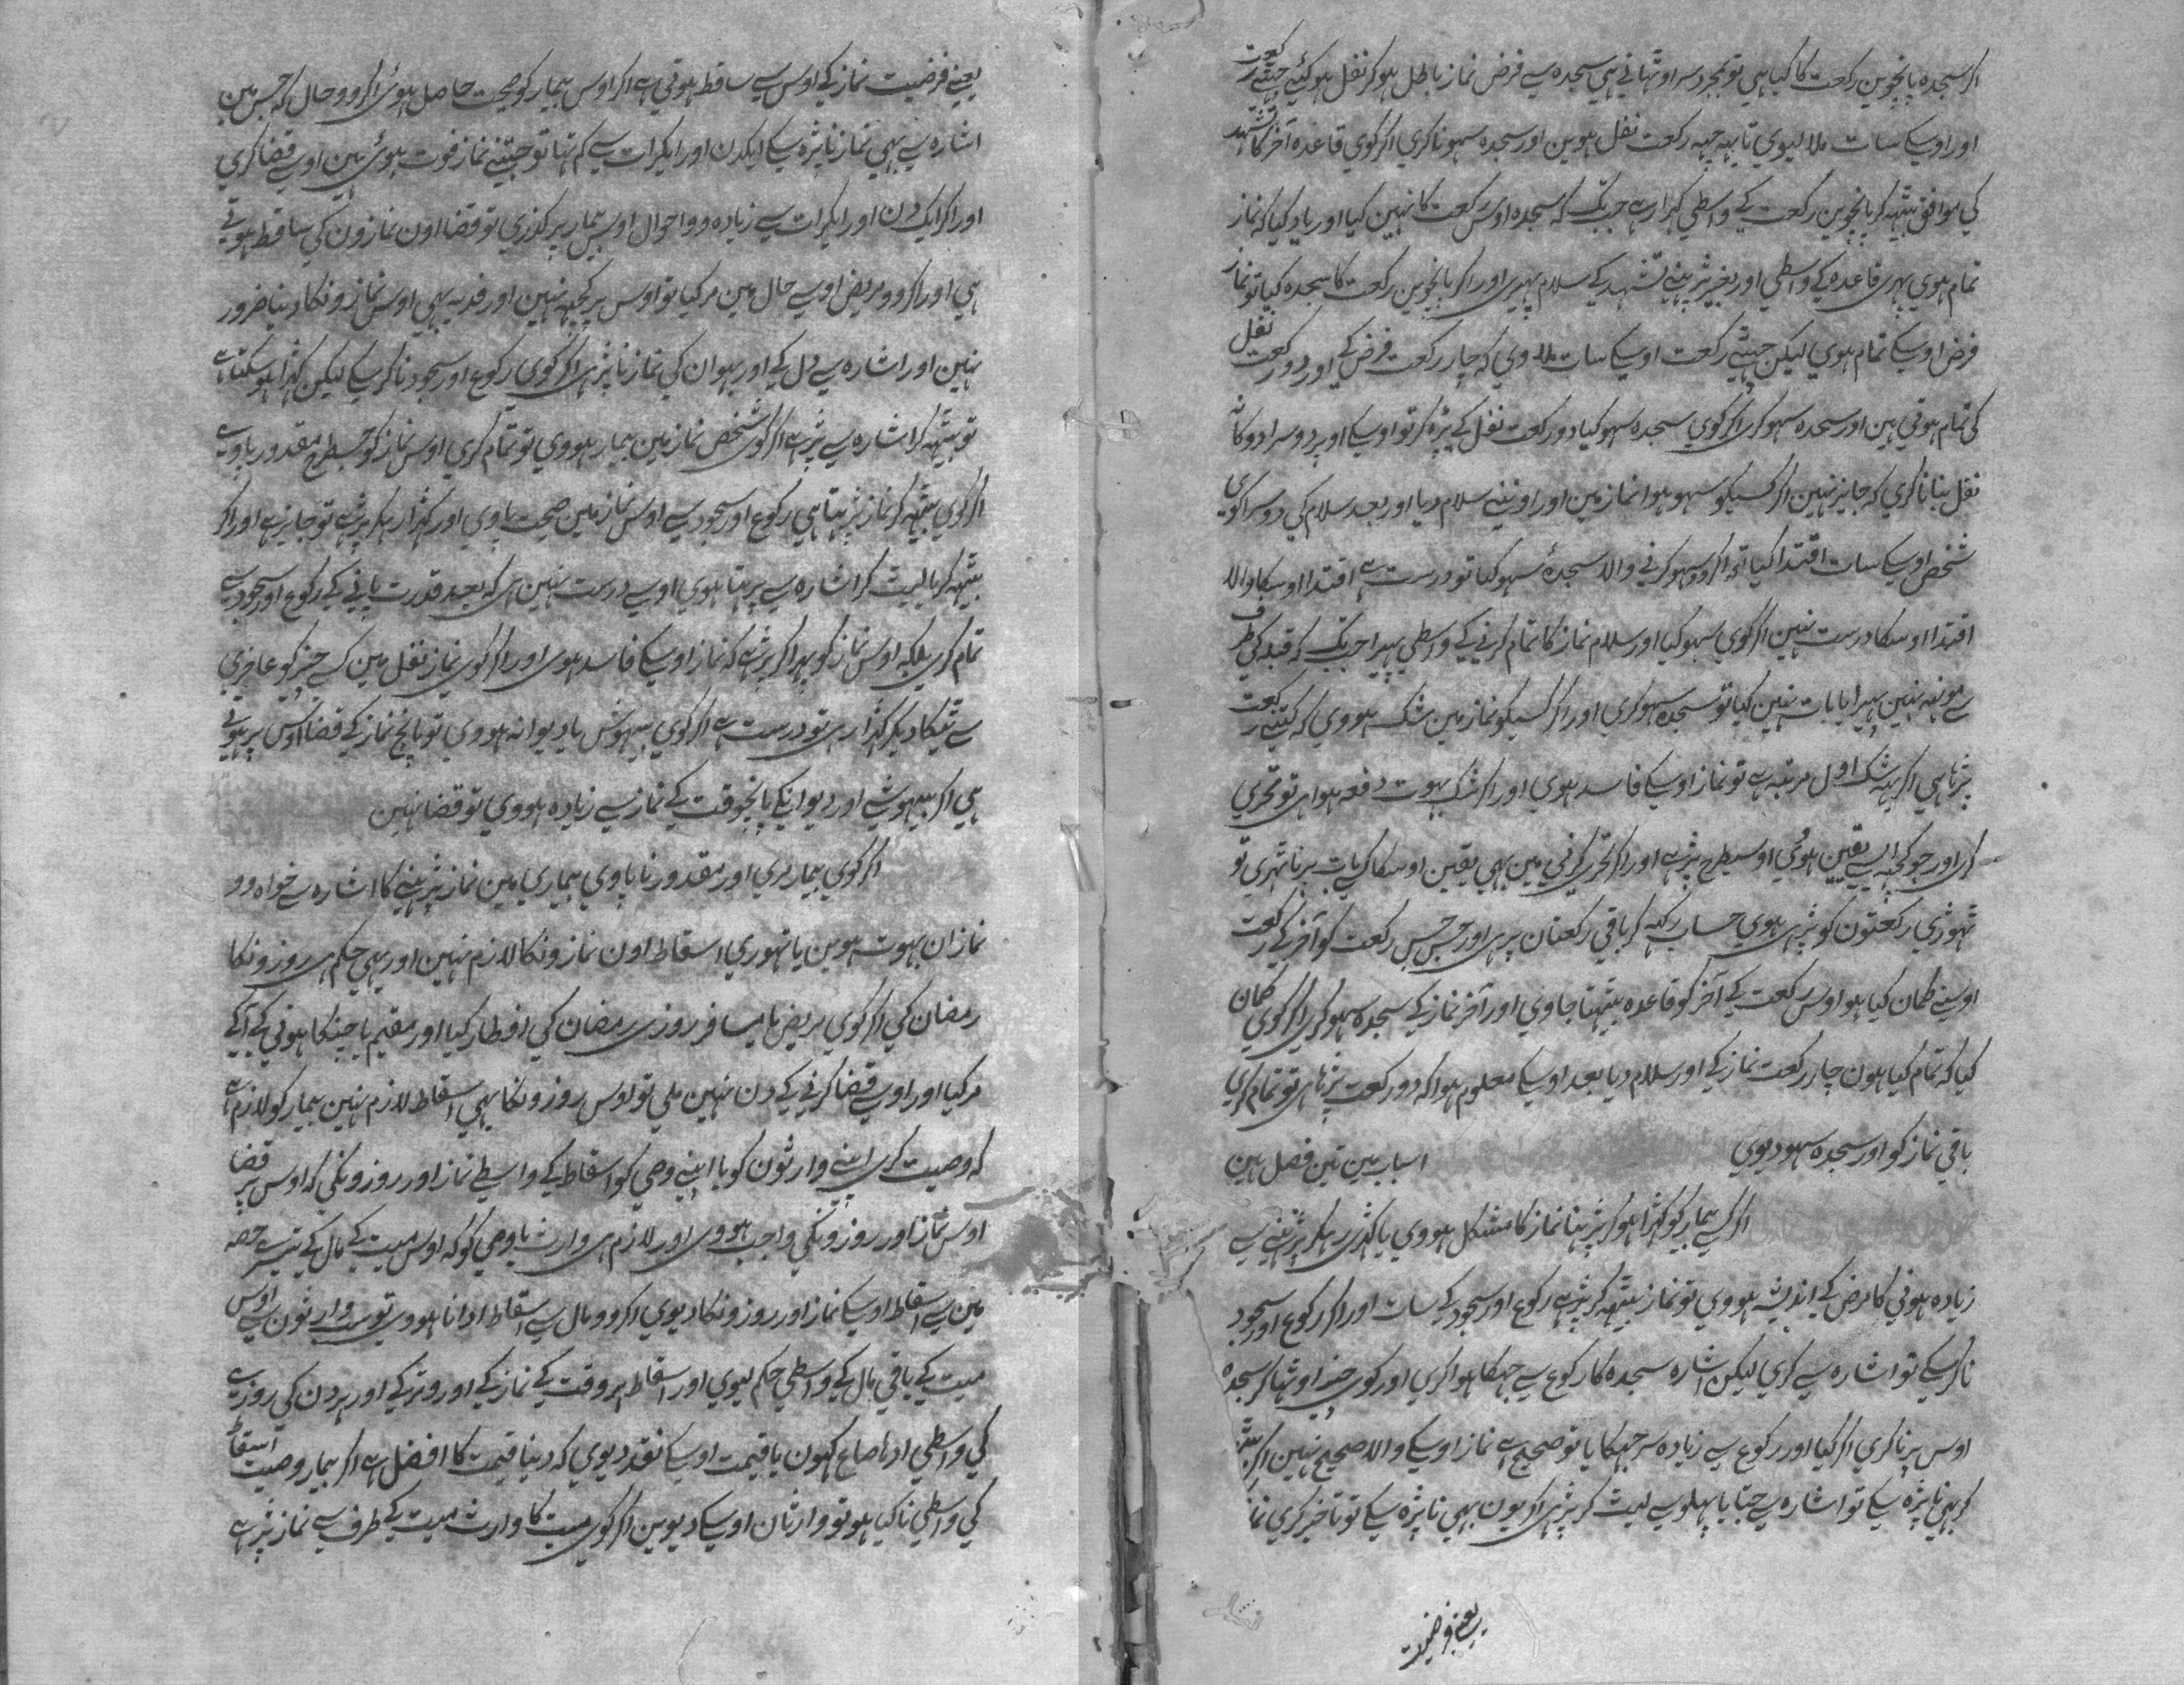 اکر سجدہ پانچوین رکعت کا کیا ہی تو بمجرد سر اوتہانی ہی سجدہ سے فرض نماز باطل ہو کر نفل ہو کئیے چہتے رکعت
اور اوسکے سات ملا لیوی تا یہہ چہہ رکعت نفل ہوین اور سجدہ سہو نا کری اکر کوی قاعدہ آخر کا تشہد
کی موافق بیتہہ کر پانچوین رکعت کے واسطی کہرا رہے جب تک کہ سجدہ اوس رکعت کا نہین کیا اور یاد کیا کہ نماز
تمام ہوی پہری قاعدہ کے واسطی اور بغیر پڑہنے تشہد کے سلام پہیری اور اکر پانچوین رکعت کا سجدہ کیا تو نماز
فرض اوسکے تمام ہوی لیکن چہتے رکعت اوسکے سات ملاوی کہ چار رکعت فرض کے اور دو رکعت نفل
کی تمام ہوتی ہین اور سجدہ سہو کری اکر کوی سجدہ سہو کیا دو رکعت نفل کے پڑہ کر تو اوسکے اوپر دوسرا دوکانہ
نفل بنا نا کری کہ جایز نہین اکر کسیکو سہو ہوا نماز مین اور اونے سلام دیا اور بعد سلام کی دوسرا کوی
شخص اوسکے سات اقتدا کیا تو اکر وو سہو کرنی والا سجدۂ سہو کیا تو درست ہے اقتدا اوسکا والا
اقتدا اوسکا درست نہین اکر کوی سہو کیا اور سلام نماز کا تمام کرنے کے واسطی پہیرا جب تک کہ قبلہ کی طرف
سے مونہہ نہین پہیرا یا بات نہین کیا تو سجدہ سہو کری اور اکر کسیکو نماز مین شک ہووی کہ کتنے رکعت
پڑہا ہی اکر یہہ شک اول مرتبہ ہے تو نماز اوسکے فاسد ہوی اور اکر شک بہوت دفعہ ہوا ہی تو تحری
کری اور جو کچہہ اسے یقین ہوئی اوسیطرح پڑہے اور اکر تحری کرنی مین بہی یقین اوسکا کسی بات پر نا تہری تو
تہوڑی رکعتون کو پڑہی ہوی حساب رکہہ کر باقی رکعتان پڑہی اور جس جس رکعت کو آخر کے رکعت
اوسنے کمان کیا ہو اوس رکعت کے آخر کو قاعدہ بیتہتا جاوی اور آخر نماز کے سجدہ سہو کری اکر کوی کمان
کیا کہ تمام کیا ہون چار رکعت نماز کے اور سلام دیا بعد اوسکے معلوم ہوا کہ دو رکعت پڑہا ہی تو تمام کری
باقی نماز کو اور سجدہ سہو دیوی اسباب مین تین فصل ہین
اکر کسے بیمار کو کہڑا ہو کر پڑہنا نماز کا مشکل ہووی یا کہڑی رہکر پڑہنے سے
زیادہ ہونی کا مرض کے اندیشہ ہووی تو نماز بیتہہ کر پڑہے رکوع اور سجود کے سات اور اکر رکوع اور سجود
نا کر سکے تو اشارہ سے کری لیکن اشارہ سجدہ کا رکوع سے جہکا ہوا کری اور کوی چیز اوتہا کر سجدہ
اوس پر نا کری اکر کیا اور رکوع سے زیادہ سر جہکایا تو صحیح ہے نماز اوسکے والا صحیح نہین اکر بیتہہ
کر بہی نا پڑہ سکے تو اشارہ سے چتا یا پہلو سے لیٹ کر پڑہی اکر یون بہی نا پڑہ سکے تو تاخیر کری نماز
یعنے فرضیت
یعنے فرضیت نماز کے اوس سے ساقط ہوتی ہے اکر اوس بیمار کو صحت حاصل ہوئی اکر وو حال کہ جس مین
اشارہ سے بہی نماز نا پڑہ سکے ایکدن اور ایکرات سے کم تہا تو جتنے نماز فوت ہوئی ہین اوسے قضا کری
اور اکر ایک دن اور ایکرات سے زیادہ وو احوال اوس بیمار پر کذری تو قضا اون نمازون کی ساقط ہوتے
ہی اور اکر وو مریض اوسے حال مین مر کیا تو اوس پر کچہہ نہین اور فدیہ بہی اوس نمازونکا دینا ضرور
نہین اور اشارہ سے دل کے اور بہوان کی نماز نا پڑہی اکر کوی رکوع اور سجود نا کر سکے لیکن کہڑا ہو سکتا ہے
تو بیتہہ کر اشارہ سے پڑہے اکر کوی شخص نماز مین بیمار ہووی تو تمام کری اوس نماز کو جسطرح مقدور پاوے
اکر کوی بیتہہ کر نماز پڑہتا ہی رکوع اور سجود سے اوس نماز مین صحت پاوی اور کہڑا رہکر پڑہے تو جایز ہے اور اکر
بیتہہ کر یا لیٹ کر اشارہ سے پڑہتا ہوی اوسے درست نہین ہی کہ بعد قدرت پانے کے رکوع اور سجود سے
تمام کری بلکہ اوس نماز کو پہرا کر پڑہے کہ نماز اوسکے فاسد ہوی اور اکر کوی نماز نفل مین کسے چیز کو عاجزی
سے تیکا دیکر کہڑا رہی تو درست ہے اکر کوی بیہوش یا دیوانہ ہووی تو پانچ نماز کے قضا اوس پر ہوتے
ہی اکر بیہوشے اور دیوانکے پانچوقت کے نماز سے زیادہ ہووی تو قضا نہین
اکر کوی بیمار مری اور مقدور نا پاوی بیماری مین نماز پڑہنے کا اشارہ سے خواہ وو
نمازان بہوت ہوین یا تہوری اسقاط اون نمازونکا لازم نہین اور یہی حکم ہی روزونکا
رمضان کی اکر کوی مریض یا مسافر روزی رمضان کی افطار کیا اور مقیم یا چنکا ہونی کے آکے
مر کیا اور اوسے قضا کرنے کے دن نہین ملی تو اوس روزونکا بہی اسقاط لازم نہین بیمار کو لازم ہے
کہ وصیت کری اپنے وارثون کو یا اپنے وصی کو اسقاط کے واسطے نماز اور روزونکی کہ اوس پر قضا
اوس نماز اور روزونکی واجب ہووی اور لازم ہی وارث یا وصی کو کہ اوس میت کے مال کے تیسرے حصہ
مین سے اسقاط اوسکے نماز اور روزونکا دیوی اکر وو مال سے اسقاط ادا نا ہووی تو وارثون سے اوس
میت کے باقی مال کے واسطی حکم لیوی اور اسقاط ہر وقت کے نماز کے اور وتر کے اور ہر دن کی روزے
کی واسطی ادہا صاع کہون یا قیمت اوسکے نقد دیوی کہ دینا قیمت کا افضل ہے اکر بیمار وصیت اسقاط
کی واسطی نا کیا ہو تو وارثان اوسکے دیوین اکر کوی میت کا وارث میت کے طرف سے نماز پڑہے